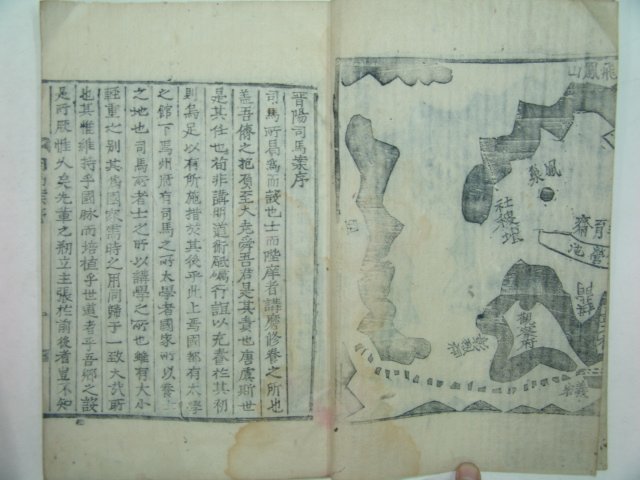 飛鳳山
鳳巢
社稷壇
育齋
司馬所曷爲而設也士而陞庠者講磨修養之所也
晋陽司馬案序
盖吾儒之抱負至大堯舜吾君是其責也唐虞斯世
是其任也苟非講明道術砥礪行誼以充養於其初
則烏足以有所施措於其後乎此上焉國都有太學
之館下焉州府有司馬之所太學者國家所以養士
之地也司馬所者士之所以講學之所也雖有大小
輕重之別其爲國家需時之用同歸于一致大哉所
也其惟維持乎國脉而培植乎世道者乎吾鄉之設
是所厥惟久矣先輩之刱立主張於前後者豈不知